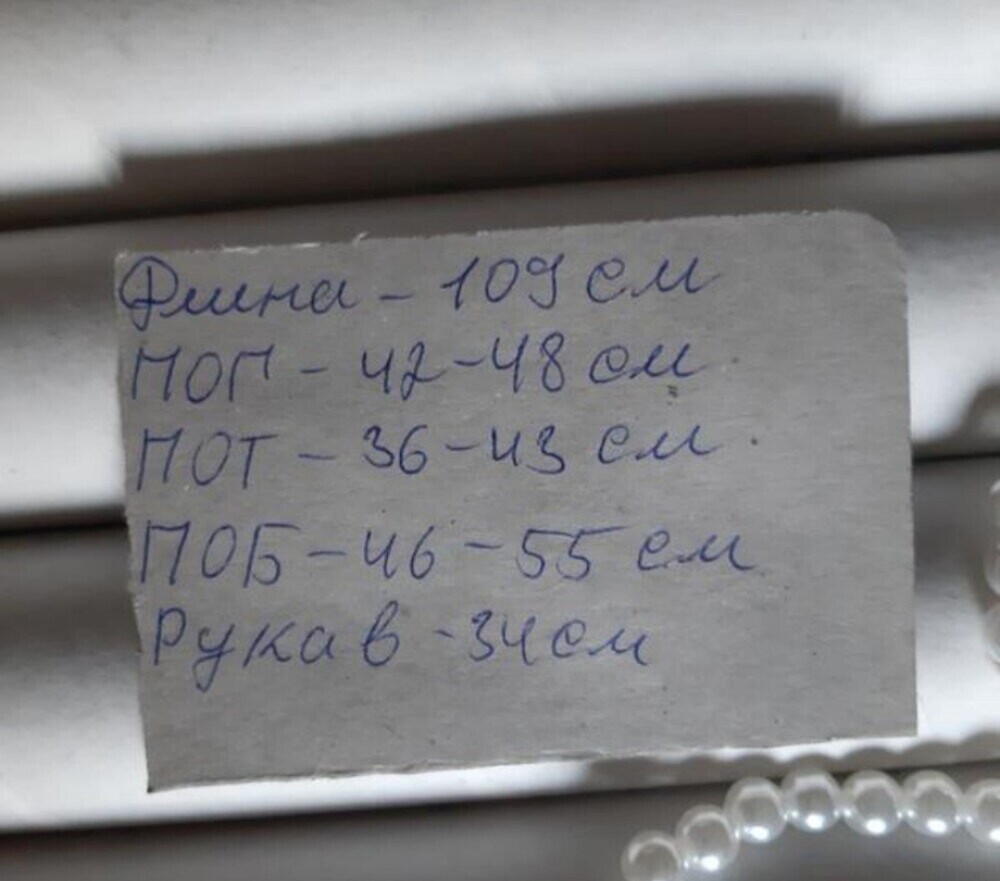 Длина - 109 см
ПОГ - 42-48 см
ПОТ - 36-43 см
ПОБ - 46-55 см
Рукав - 34 см